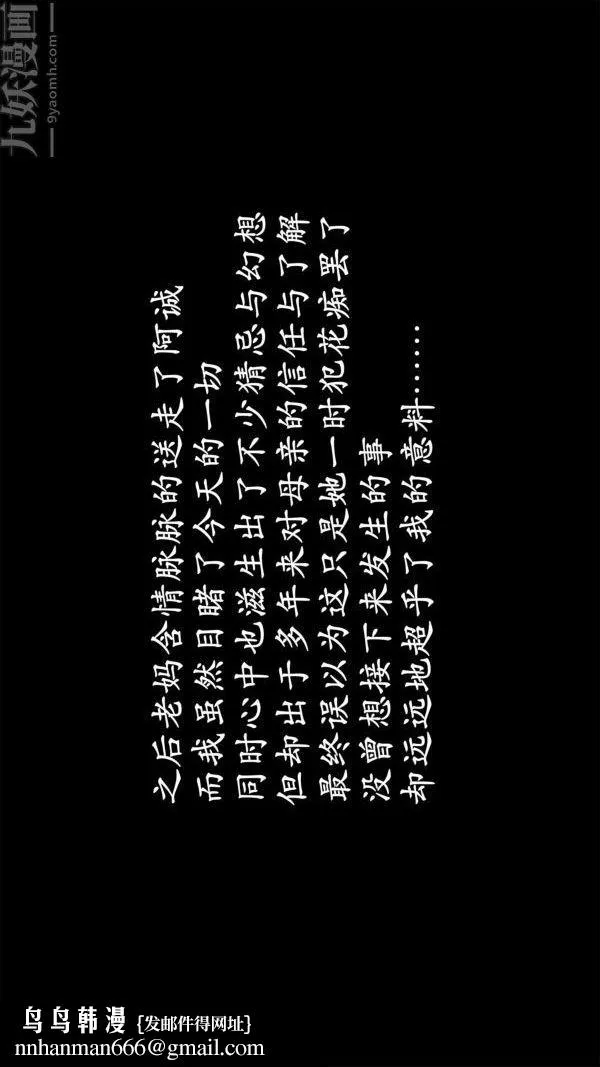 九妖漫画
9yaomh.com
之后老妈含情脉脉的送走了阿诚
而我虽然目睹了今天的一切
同时心中也滋生出了不少猜忌与幻想
但却出于多年来对母亲的信任与了解
最终误以为这只是她一时犯花痴罢了
没曾想接下来发生的事
却远远地超乎了我的意料……
鸟鸟韩漫{发邮件得网址}
nnhanman666@gmail.com